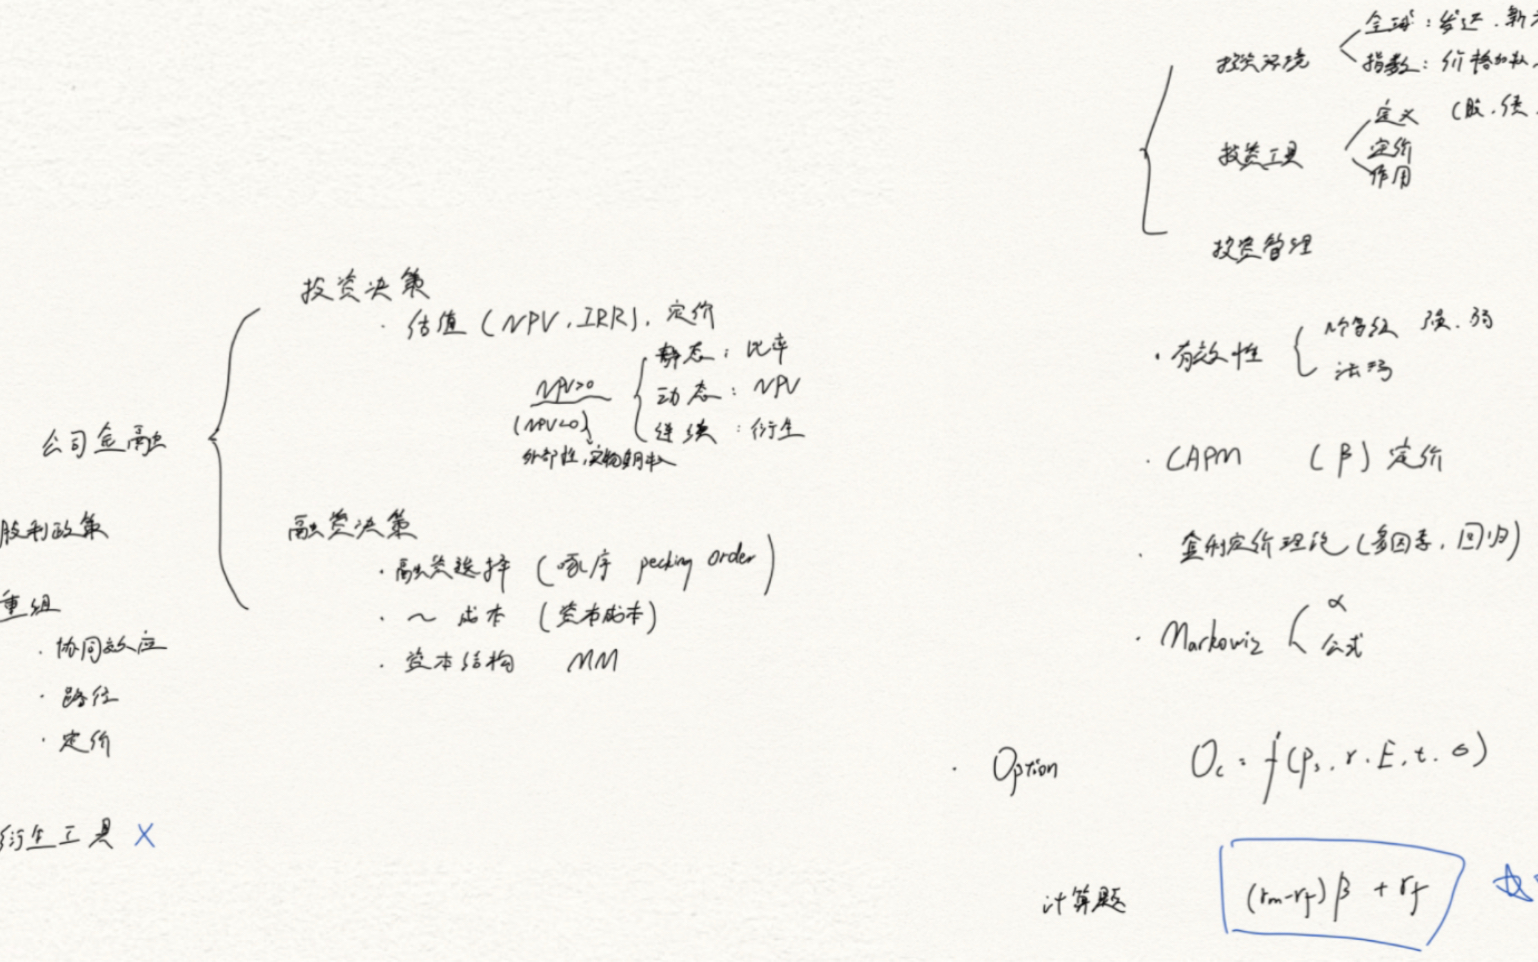 公司金融
投资决策
· 估值 (NPV, IRR), 定价
NPV>0
(NPV<0)
外部性, 实物期权
静态: 比率
动态: NPV
连续: 衍生
融资决策
· 融资选择 (啄序 pecking order)
· ~ 成本 (资本成本)
· 资本结构 MM
股利政策
重组
· 协同效应
· 路径
· 定价
衍生工具 ×
投资环境
全球: 发达. 新
指数: 价格加权
投资工具
定义 (股. 债.
定价
作用
投资管理
· 有效性
强. 弱
法玛
· CAPM (β) 定价
· 套利定价理论 (多因素, 回归)
· Markowiz
α
公式
· Option Oc = f(Ps. r. E. t. σ)
计算题 (rm-rf)β + rf ☆